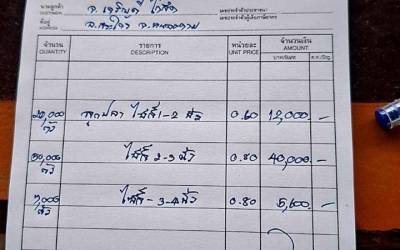 นามลูกค้า
CUSTOMER
เลขประจำตัวประชาชน
ที่อยู่
ADDRESS
จำนวน รายการ หน่วยละ จำนวนเงิน
QUANTITY DESCRIPTION UNIT PRICE AMOUNT
บาท/Baht ส.ต./Stg.
20,000 ตัว ลูกปลา ไซส์ 1-2 นิ้ว 0.60 12,000.-
50,000 ตัว ไซส์ 2-3 นิ้ว 0.80 40,000.-
7,000 ตัว ไซส์ - 3-4 นิ้ว 0.80 5,600.-